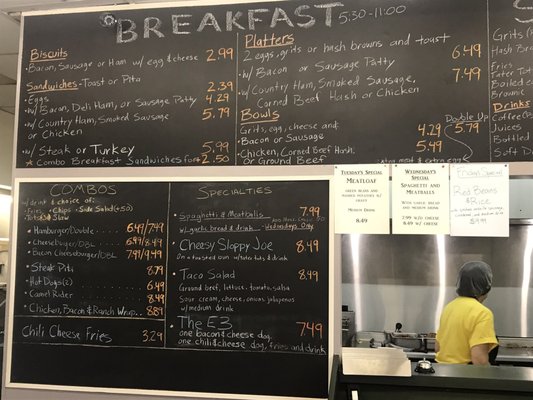 BREAKFAST 5:30-11:00
Biscuits
• Bacon, Sausage or Ham w/ egg & cheese 2.99
Sandwiches - Toast or Pita
• Eggs 2.39
• w/ Bacon, Deli Ham, or Sausage Patty 4.29
• w/ Country Ham, Smoked Sausage 5.79
or Chicken
• w/ Steak or Turkey 5.99
* Combo Breakfast Sandwiches for 2.50
Platters
2 eggs, grits or hash browns and toast 6.49
• w/ Bacon or Sausage Patty 7.49
• w/ Country Ham, Smoked Sausage,
Corned Beef Hash or Chicken
Bowls
Double Up
Grits, egg, cheese and:
• Bacon or Sausage 4.29 5.79
• Chicken, Corned Beef Hash, 5.49
or Ground Beef
extra meat & extra egg
S
Grits
Hash Brow
Fries
Tater Tot
Boiled e
Brownie
Drinks
Coffee
Juices
Bottled
Soft D
COMBOS
w/ drink & choice of:
• Fries • Chips • Side Salad (+50)
Slaw
• Hamburger/Double 6.49/7.49
• Cheeseburger/DBL 6.99/8.49
• Bacon Cheeseburger/DBL 7.99/9.49
• Steak Pita 8.79
• Hot Dogs (2) 6.49
• Camel Rider 8.49
• Chicken, Bacon & Ranch Wrap 8.89
Chili Cheese Fries 3.29
SPECIALTIES
• Spaghetti & Meatballs 7.99
w/ garlic bread & drink Wednesdays Only
• Cheesy Sloppy Joe 8.49
On a toasted bun w/ tater tots & drink
• Taco Salad 8.49
Ground beef, lettuce, tomato, salsa
sour cream, cheese, onions, jalapenos
w/ medium drink
• The E3 7.49
one bacon & cheese dog,
one chili & cheese dog, fries and drink
TUESDAY'S SPECIAL
MEATLOAF
GREEN BEANS AND
MASHED POTATOES OR
MEDIUM DRINK
8.49
WEDNESDAY'S SPECIAL
SPAGHETTI AND
MEATBALLS
7.99 W/CHEESE
8.49 W/
FRIDAY SPECIAL
RED BEANS
& RICE
8.99